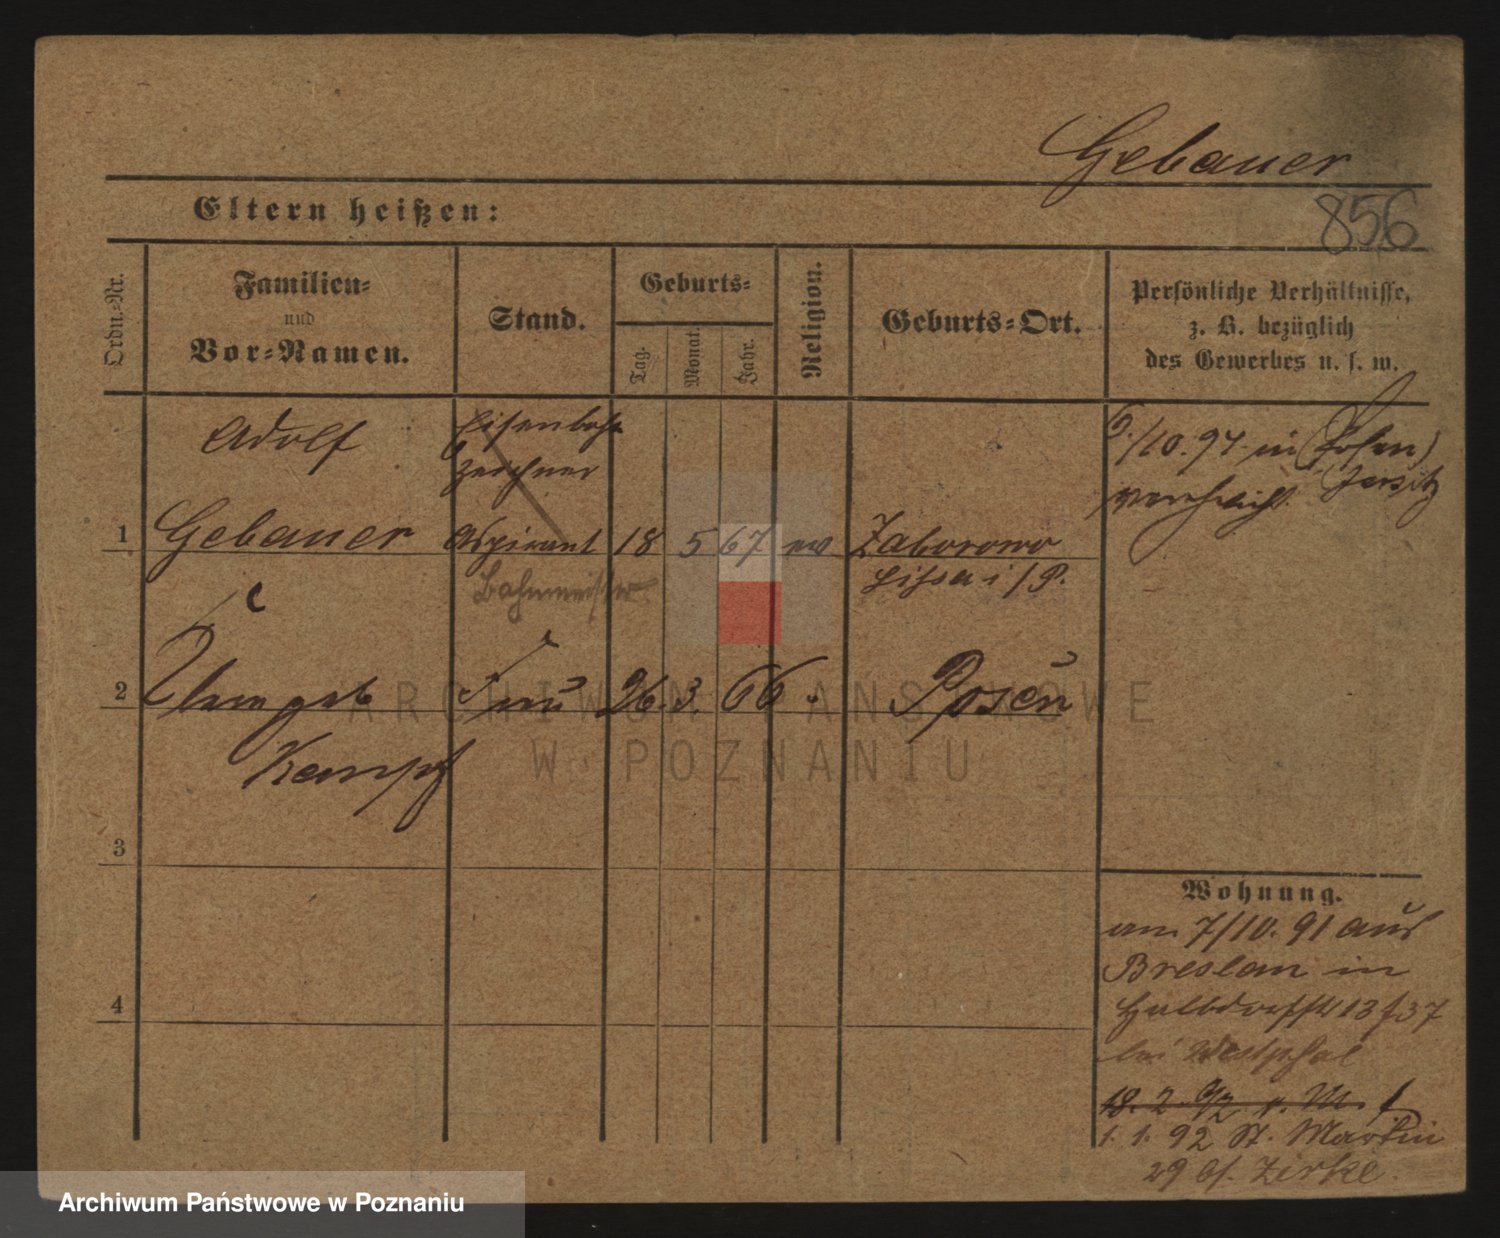 Gebauer
856
Eltern heißen:
Ordn.-Nr.
Familien-
und
Vor-Namen.
Stand.
Geburts-
Tag.
Monat.
Jahr.
Religion.
Geburts-Ort.
Persönliche Verhältnisse,
z. B. bezüglich
des Gewerbes u. s. w.
Adolf
Eisenbahn
Zeichner
1 Gebauer Aspirant 18 5 67 ev Zaborowo
Bahnmeister
Lissa i/P.
/10. 97 in (Posen)
Jersitz
2 geb Frau 26. 3. 66 Posen
Kempf
3
4
Wohnung.
am 7/10. 91 aus
Breslau in
Halbdorfstr 13 f 37
bei Westphal
18. 2. 92 v. M.
1. 1. 92 St. Martin
29 b/. Zirke.
ARCHIWUM PAŃSTWOWE
W POZNANIU
Archiwum Państwowe w Poznaniu